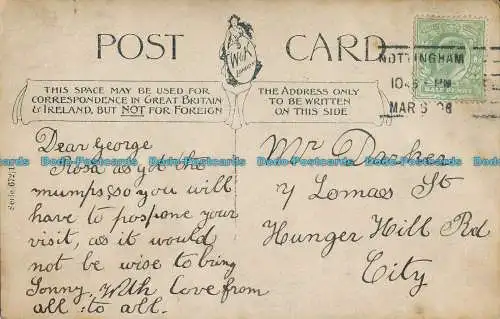 POST CARD
W&K
LONDON
THIS SPACE MAY BE USED FOR
CORRESPONDENCE IN GREAT BRITAIN
& IRELAND, BUT NOT FOR FOREIGN
THE ADDRESS ONLY
TO BE WRITTEN
ON THIS SIDE
NOTTINGHAM
MAR
HALFPENNY
Dear George
Rosa as got the
mumps, so you will
have to pospone your
visit, as it would
not be wise to bring
Sonny, With love from
all : to all.
Mr
7 Lomas St
Hunger Hill Rd
City
Dodo-Postcards Dodo-Postcards Dodo-Postcards